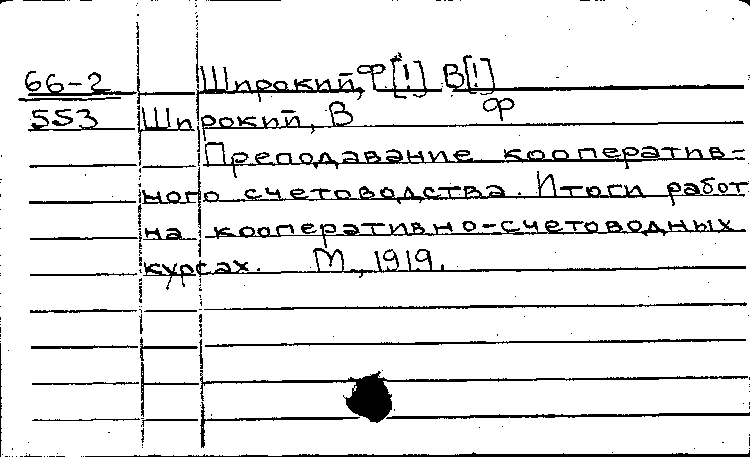 66-2 Широкий, Ф[!] В[!]
553 Широкий, В Ф
Преподавание кооператив=
ного счетоводства. Итоги работ
на кооперативно-счетоводных
курсах. М., 1919.